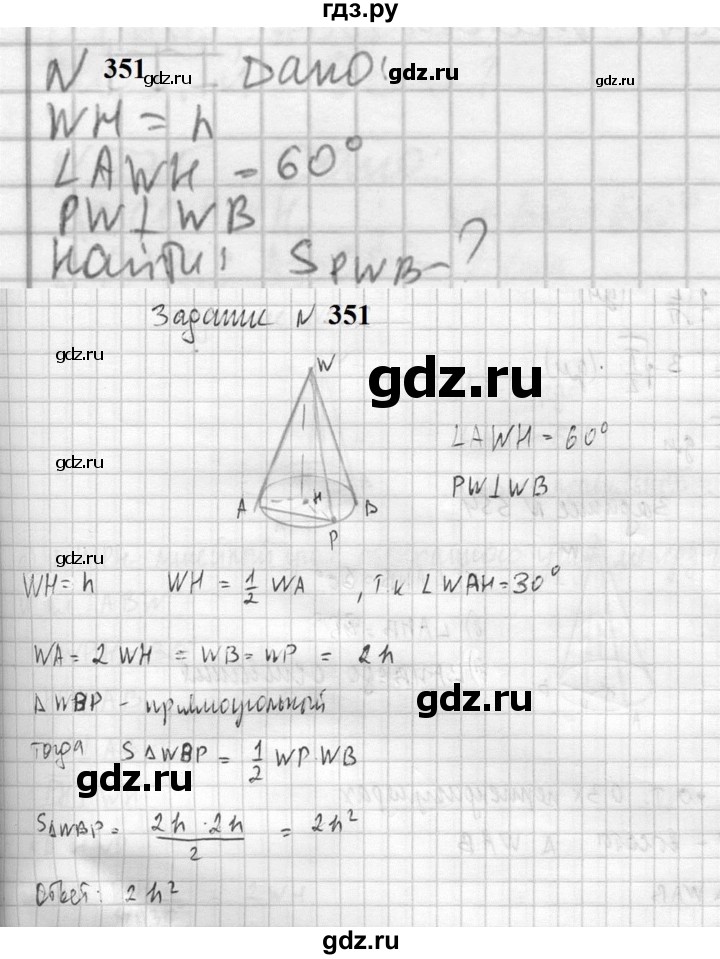 гдз.ру
N 351 Дано:
gdz.ru gdz.ru gdz.ru
WH = h
∠AWH = 60°
PW⊥WB
gdz.ru gdz.ru
Найти: S PWB - ?
Задание N 351
gdz.ru
W
gdz.ru
∠AWH = 60°
gdz.ru
PW⊥WB
A H B
P
gdz.ru
WH = h WH = 1/2 WA , т.к ∠WAH = 30°
WA = 2 WH = WB = WP = 2h
gdz.ru
Δ WBP - прямоугольный
тогда S Δ WBP = 1/2 WP·WB
gdz.ru
SΔWBP = 2h · 2h / 2 = 2h²
Ответ: 2h²
gdz.ru gdz.ru